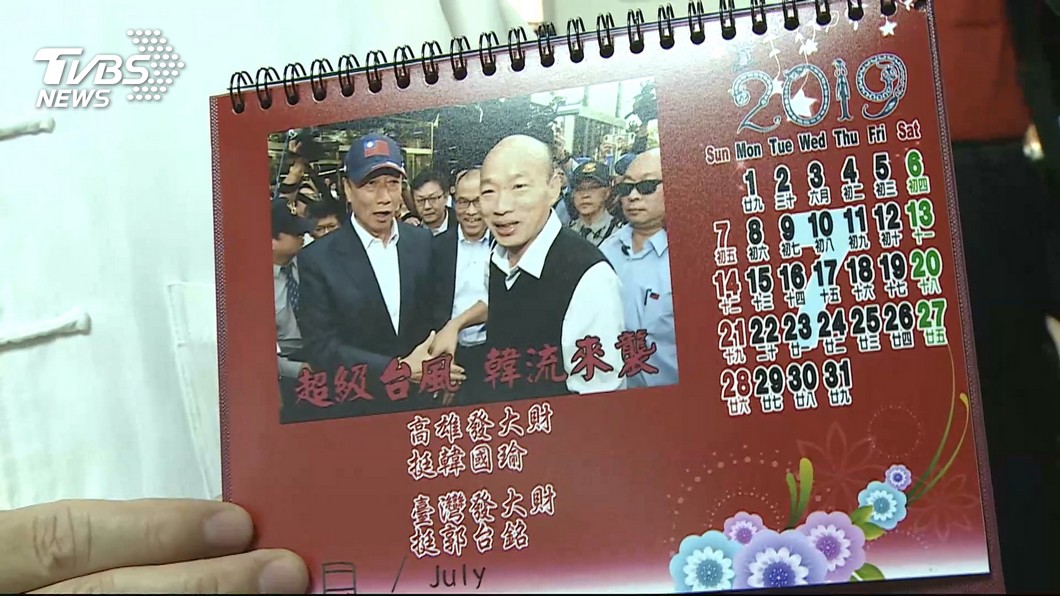 TVBS
NEWS
2019
Sun Mon Tue Wed Thu Fri Sat
1 2 3 4 5 6
廿九 三十 六月 初二 初三 初四
7 8 9 10 11 12 13
初五 初六 初七 初八 初九 初十 十一
14 15 16 17 18 19 20
十二 十三 十四 十五 十六 十七 十八
21 22 23 24 25 26 27
十九 二十 廿一 廿二 廿三 廿四 廿五
28 29 30 31
廿六 廿七 廿八 廿九
超級台風 韓流來襲
高雄發大財
挺韓國瑜
臺灣發大財
挺郭台銘
月 / July